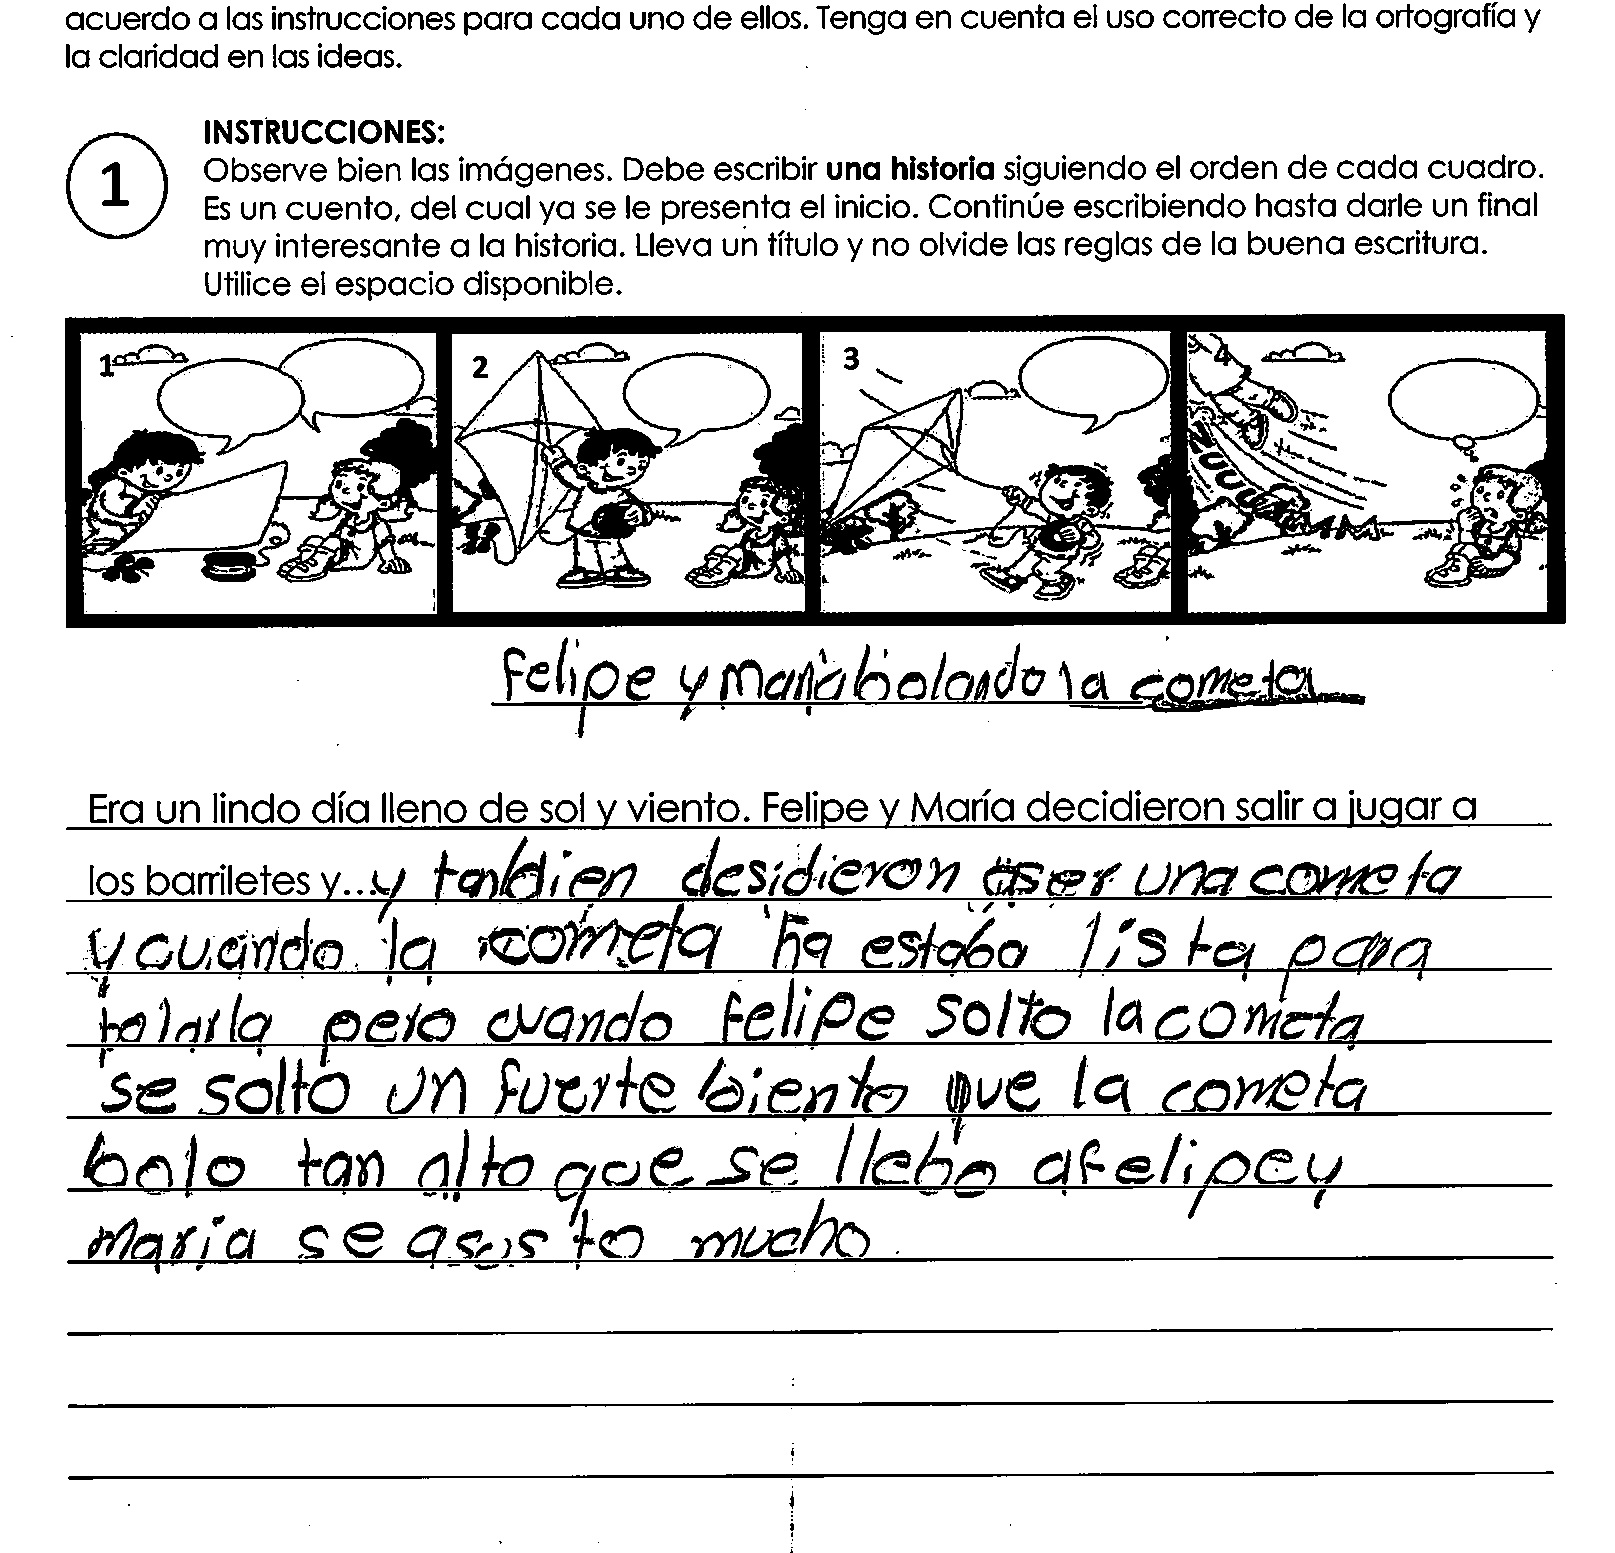 acuerdo a las instrucciones para cada uno de ellos. Tenga en cuenta el uso correcto de la ortografía y
la claridad en las ideas.
1
INSTRUCCIONES:
Observe bien las imágenes. Debe escribir una historia siguiendo el orden de cada cuadro.
Es un cuento, del cual ya se le presenta el inicio. Continúe escribiendo hasta darle un final
muy interesante a la historia. Lleva un título y no olvide las reglas de la buena escritura.
Utilice el espacio disponible.
1 2 3 4
Felipe y María bolando la cometa
Era un lindo día lleno de sol y viento. Felipe y María decidieron salir a jugar a
los barriletes y... y desidieron aser una cometa
y cuando la cometa ha estaba lista para
pero cuando Felipe solto la cometa
se solto un fuerte biento que la cometa
bolo tan alto que se llebo a felipe y
maria se asusto mucho.